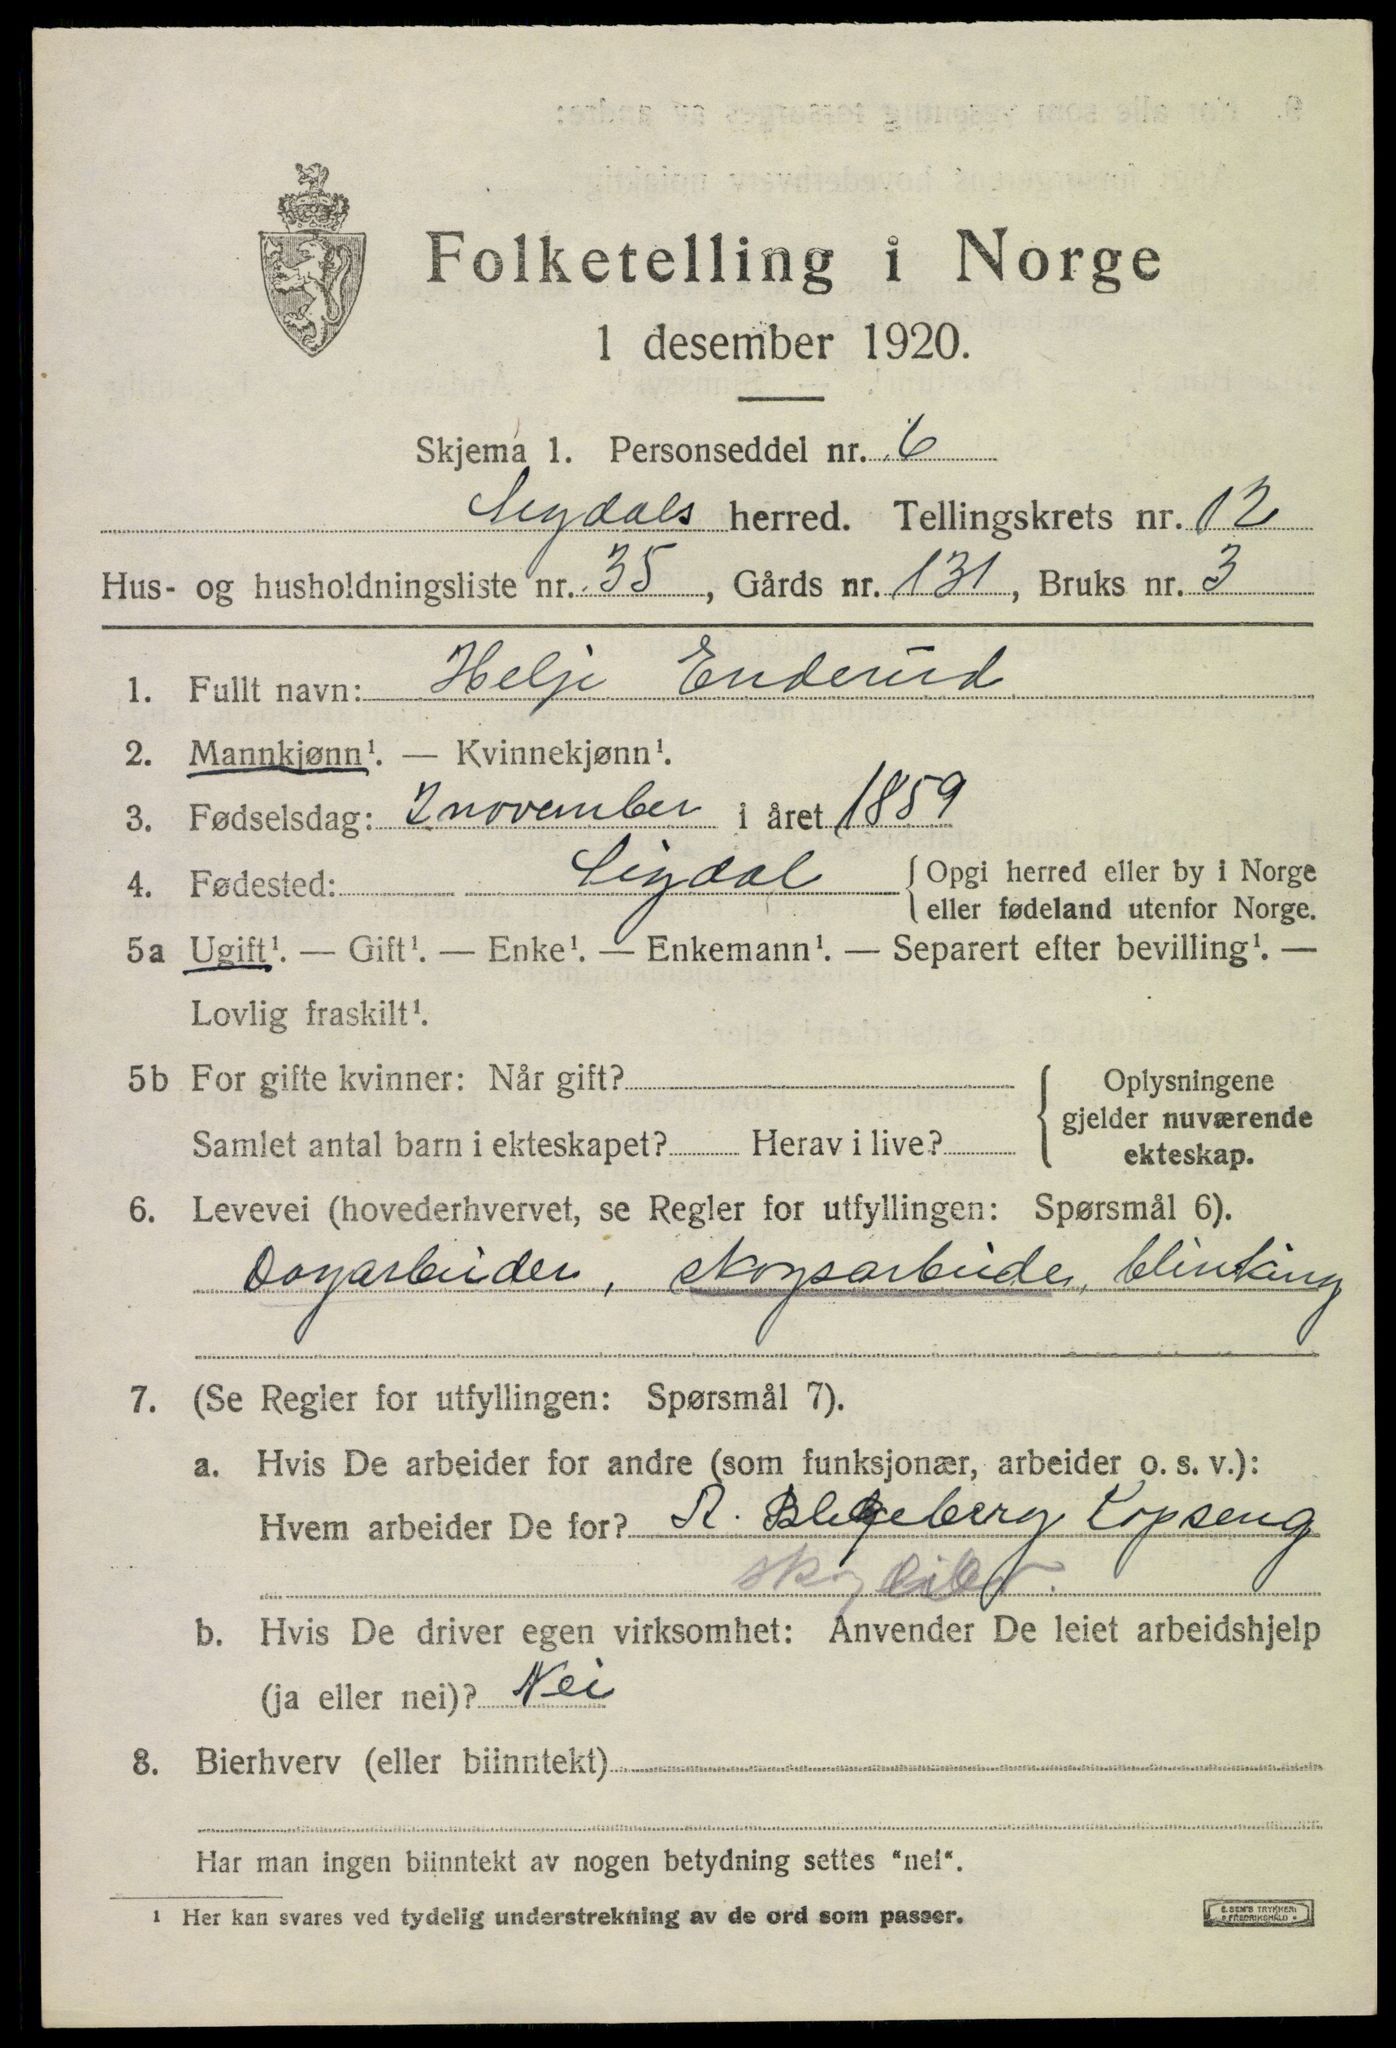 Folketelling i Norge
1 desember 1920.
Skjema 1. Personseddel nr. 6
Sigdals herred. Tellingskrets nr. 12
Hus- og husholdningsliste nr. 35, Gårds nr. 131, Bruks nr. 3
1. Fullt navn: Helje Enderud
2. Mannkjønn¹. — Kvinnekjønn¹.
3. Fødselsdag: 2 november i året 1859
4. Fødested: Sigdal { Opgi herred eller by i Norge
eller fødeland utenfor Norge.
5a Ugift¹. — Gift¹. — Enke¹. — Enkemann¹. — Separert efter bevilling¹. —
Lovlig fraskilt¹.
5b For gifte kvinner: Når gift?
Samlet antal barn i ekteskapet? Herav i live?
{ Oplysningene
gjelder nuværende
ekteskap.
6. Levevei (hovederhvervet, se Regler for utfyllingen: Spørsmål 6).
Dagarbeider, skogsarbeide, blinking
7. (Se Regler for utfyllingen: Spørsmål 7).
a. Hvis De arbeider for andre (som funksjonær, arbeider o. s. v.):
Hvem arbeider De for? A.
skogeier.
b. Hvis De driver egen virksomhet: Anvender De leiet arbeidshjelp
(ja eller nei)? Nei
8. Bierhverv (eller biinntekt)
Har man ingen biinntekt av nogen betydning settes "nei".
¹ Her kan svares ved tydelig understrekning av de ord som passer.
E. SEM'S TRYKKERI
FREDRIKSHALD